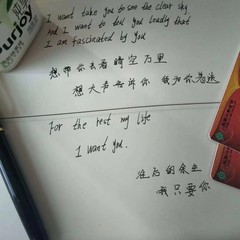 I want take you to see the clear sky
And I want to tell you loudly that
I am fascinated by you
想带你去看晴空万里
想大声告诉你 我为你着迷
For the rest my life
I want you.
往后的余生
我只要你